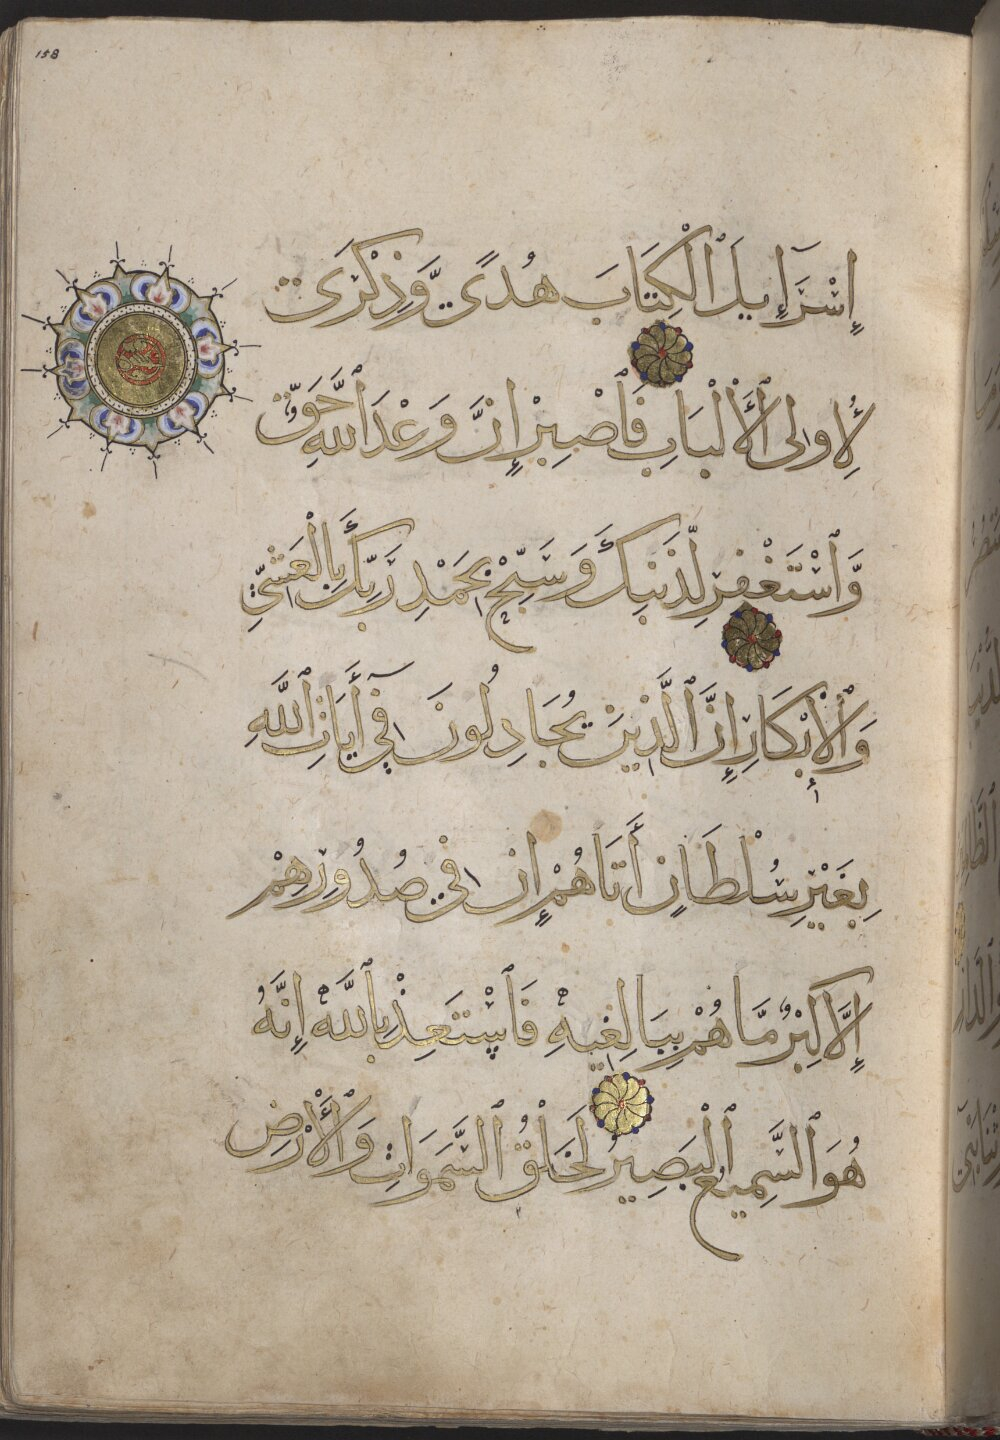 158
إِسْرَآءِيلَ ٱلْكِتَابَ هُدًى وَّذِكْرَى
لِأُولِى ٱلْأَلْبَابِ فَٱصْبِرْ إِنَّ وَعْدَ ٱللَّهِ حَقٌّ
وَّٱسْتَغْفِرْ لِذَنبِكَ وَسَبِّحْ بِحَمْدِ رَبِّكَ بِالْعَشِيِّ
وَٱلْأِبْكَارِ إِنَّ ٱلَّذِينَ يُجَادِلُونَ فِيٓ أَيَاتِ ٱللَّهِ
بِغَيْرِ سُلْطَانٍ أَتَاهُمْ إِن فِي صُدُورِهِمْ
إِلَّا كِبْرٌ مَّا هُمْ بِبَالِغِيهِ فَٱسْتَعِذْ بِٱللَّهِ إِنَّهُ
هُوَ ٱلسَّمِيعُ ٱلْبَصِيرُ لَخَلْقُ ٱلسَّمَوَاتِ وَٱلْأَرْضِ